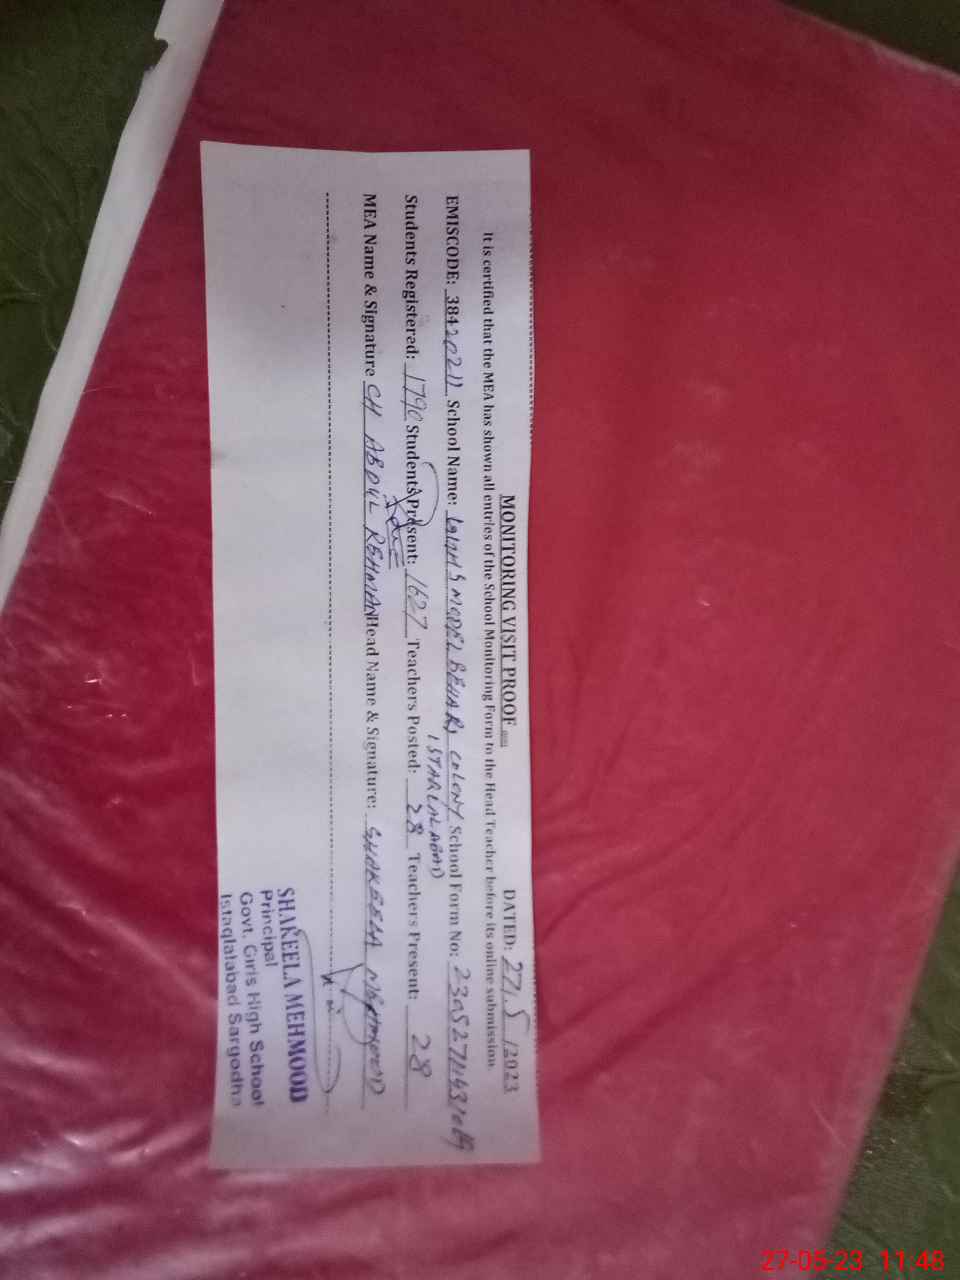 MONITORING VISIT PROOF
DATED: 27/5/2023
It is certified that the MEA has shown all entries of the School Monitoring Form to the Head Teacher before its online submission.
EMISCODE: 38420211 School Name: MODEL BEHARI COLONY School Form No:
ISTAQLALABAD
Students Registered: 1790 Students Present: 1627 Teachers Posted: 28 Teachers Present: 28
MEA Name & Signature CH ABDUL REHMAN Head Name & Signature: SHAKEELA MEHMOOD
SHAKEELA MEHMOOD
Principal
Govt. Girls High School
Istaqlalabad Sargodha
27-05-23 11:48